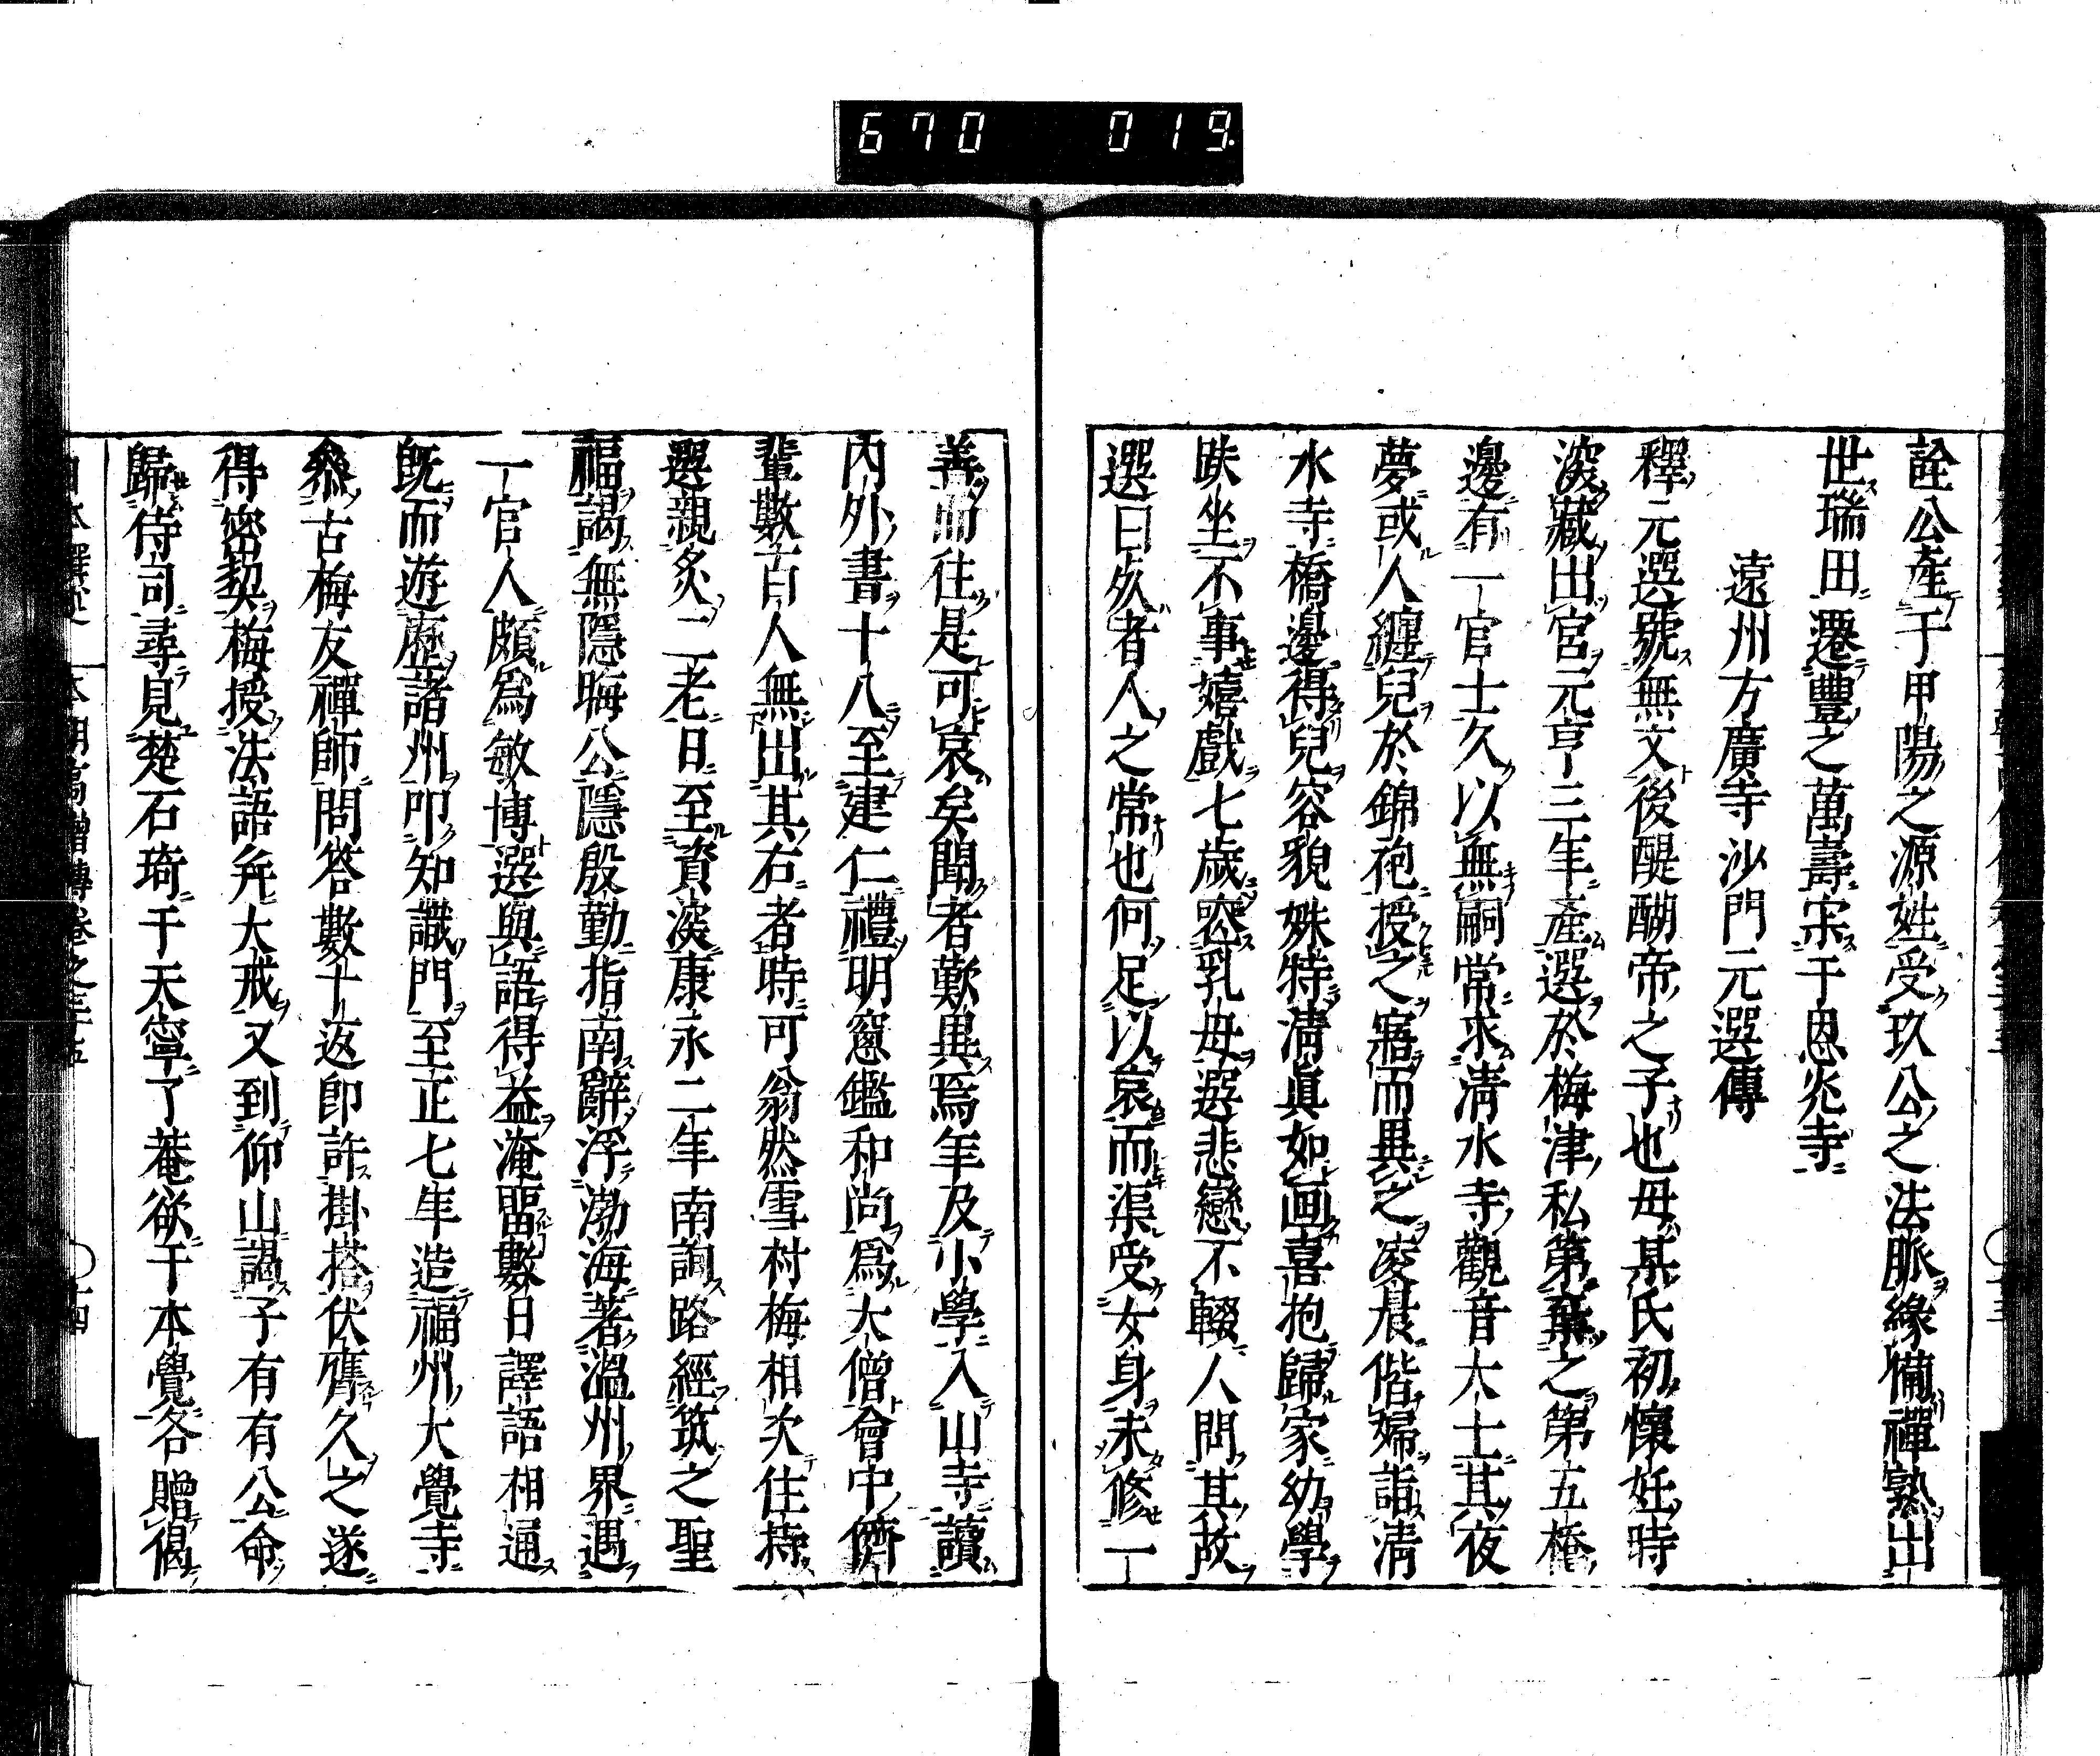 670 019
詮公産于甲陽之源姓受玖公之法脈緣備禪熟出
世瑞田遷豐之萬壽宋于恩兆寺
遠州方廣寺沙門元選傳
釋元選號無文後醍醐帝之子也母某氏初懷妊時
淩藏出宮元亨三年産選於梅津私第葉之第五橋
邊有一官士久以無嗣常求淸水寺觀音大士其夜
夢或人纏兒於錦袍授之寤而異之凌晨偕婦詣淸
水寺橋邊得兒容貌姝特淸眞如画喜抱歸家幼學
趺坐不事嬉戲七歲喪乳母選悲戀不輟人問其故
選曰死者人之常也何足以哀而渠受女身未修一
善而往是可哀矣聞者歎異焉年及小學入山寺讀
內外書十八至建仁禮明窓鑑和尚爲大僧會中儕
輩數百人無出其右者時可翁然雪村梅相次住持
選親炙二老日至資淡康永二年南詢路經筑之聖
福謁無隱晦公隱殷勤指南辭浮渤海著溫州界遇
一官人頗爲敏博選與語得益淹留數日譯語相通
既而遊歷諸州叩知識門至正七年造福州大覺寺
叅古梅友禪師問答數十返卽許掛搭伏膺久之遂
得密契梅授法語幷大戒又到仰山謁子有有公命
歸侍司尋見楚石琦于天寧了菴欲于本覺各贈偈